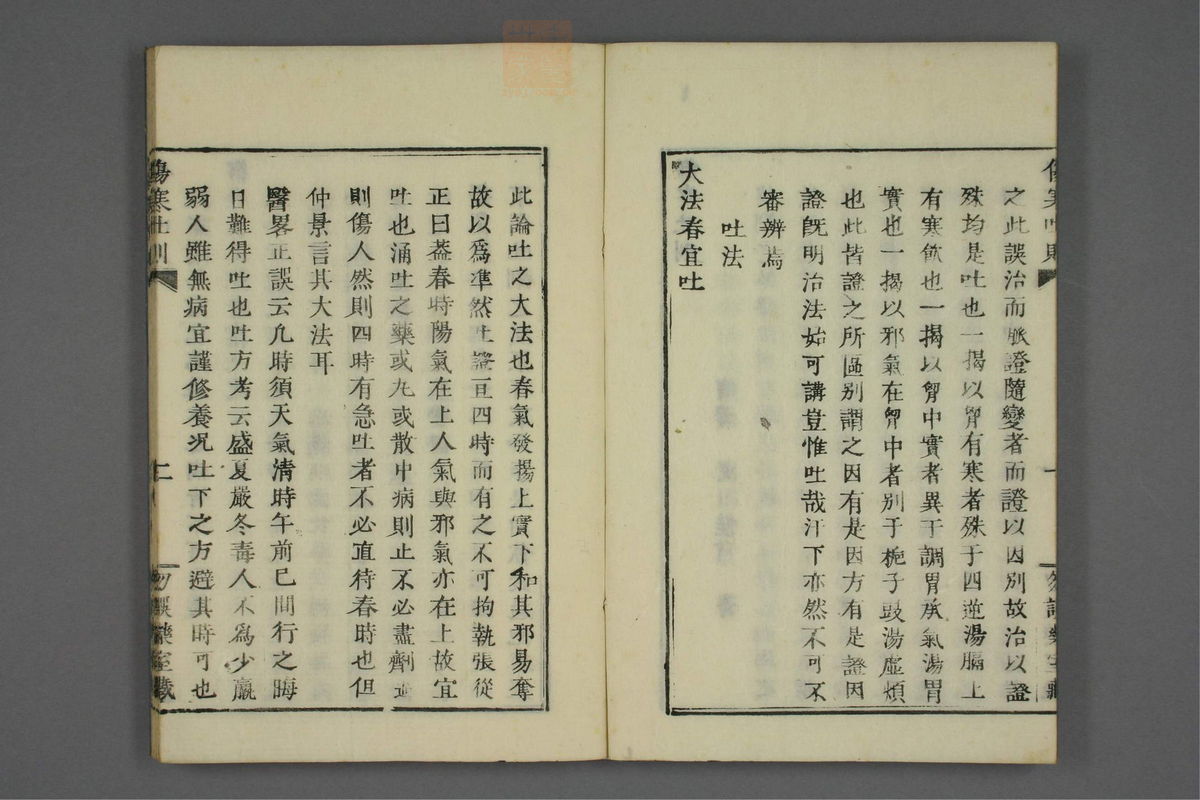 之此誤治而脈證隨變者而證以因別故治以證
殊均是吐也一揭以胷有寒者殊于四逆湯膈上
有寒飮也一揭以胷中實者異于調胃承氣湯胃
實也一揭以邪氣在胷中者別于梔子豉湯虛煩
也此皆證之所區別謂之因有是因方有是證因
證旣明治法始可講豈惟吐哉汗下亦然不可不
審辨焉
吐法
大法春宜吐
此論吐之大法也春氣發揚上實下和其邪易奪
故以爲準然吐證亘四時而有之不可拘執張從
正曰葢春時陽氣在上人氣與邪氣亦在上故宜
吐也涌吐之藥或丸或散中病則止不必盡劑過
則傷人然則四時有急吐者不必直待春時也但
仲景言其大法耳
醫畧正誤云凡時須天氣淸時午前巳間行之晦
日難得吐也吐方考云盛夏嚴冬毒人不爲少羸
弱人雖無病宜謹修養况吐下之方避其時可也
傷寒吐則
二
勿誤藥室藏